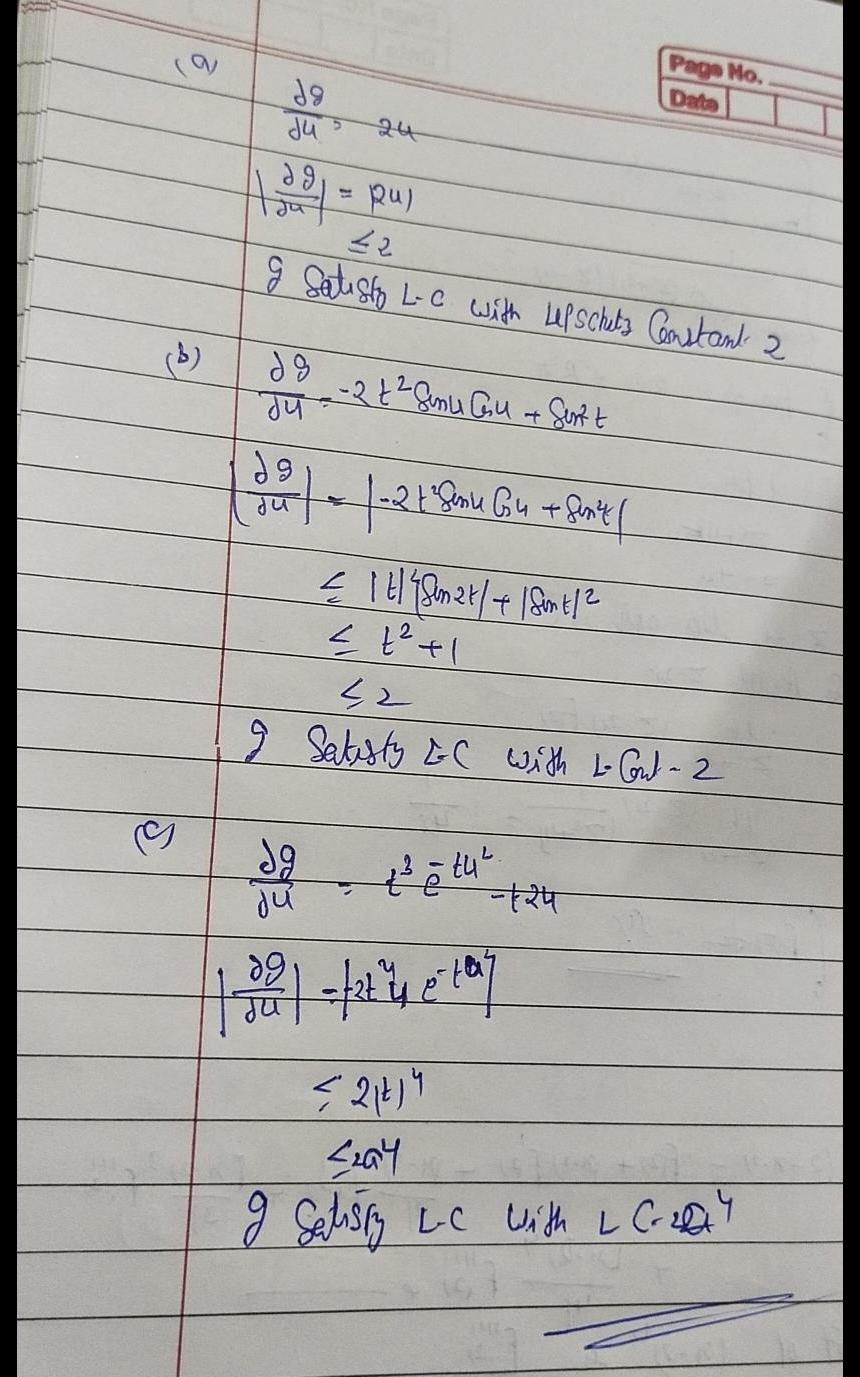 Page No.
Date
(a)
∂g/∂u = 2u
|∂g/∂u| = |2u|
≤ 2
g Satisfy L-C with Lipschitz Constant 2
(b)
∂g/∂u = -2t² Sinu Cosu + Sin²t
|∂g/∂u| = |-2t² Sinu Cosu + Sin²t|
≤ |t|² |Sin2t| + |Sint|²
≤ t² + 1
≤ 2
g Satisfy L-C with L-Cont - 2
(c)
∂g/∂u = t³ e^{-tu²} -t2u
|∂g/∂u| = |-2t⁴u e^{-tu²}|
≤ 2|t|⁴
≤ 2a⁴
g Satisfy L-C with L C- 2a⁴